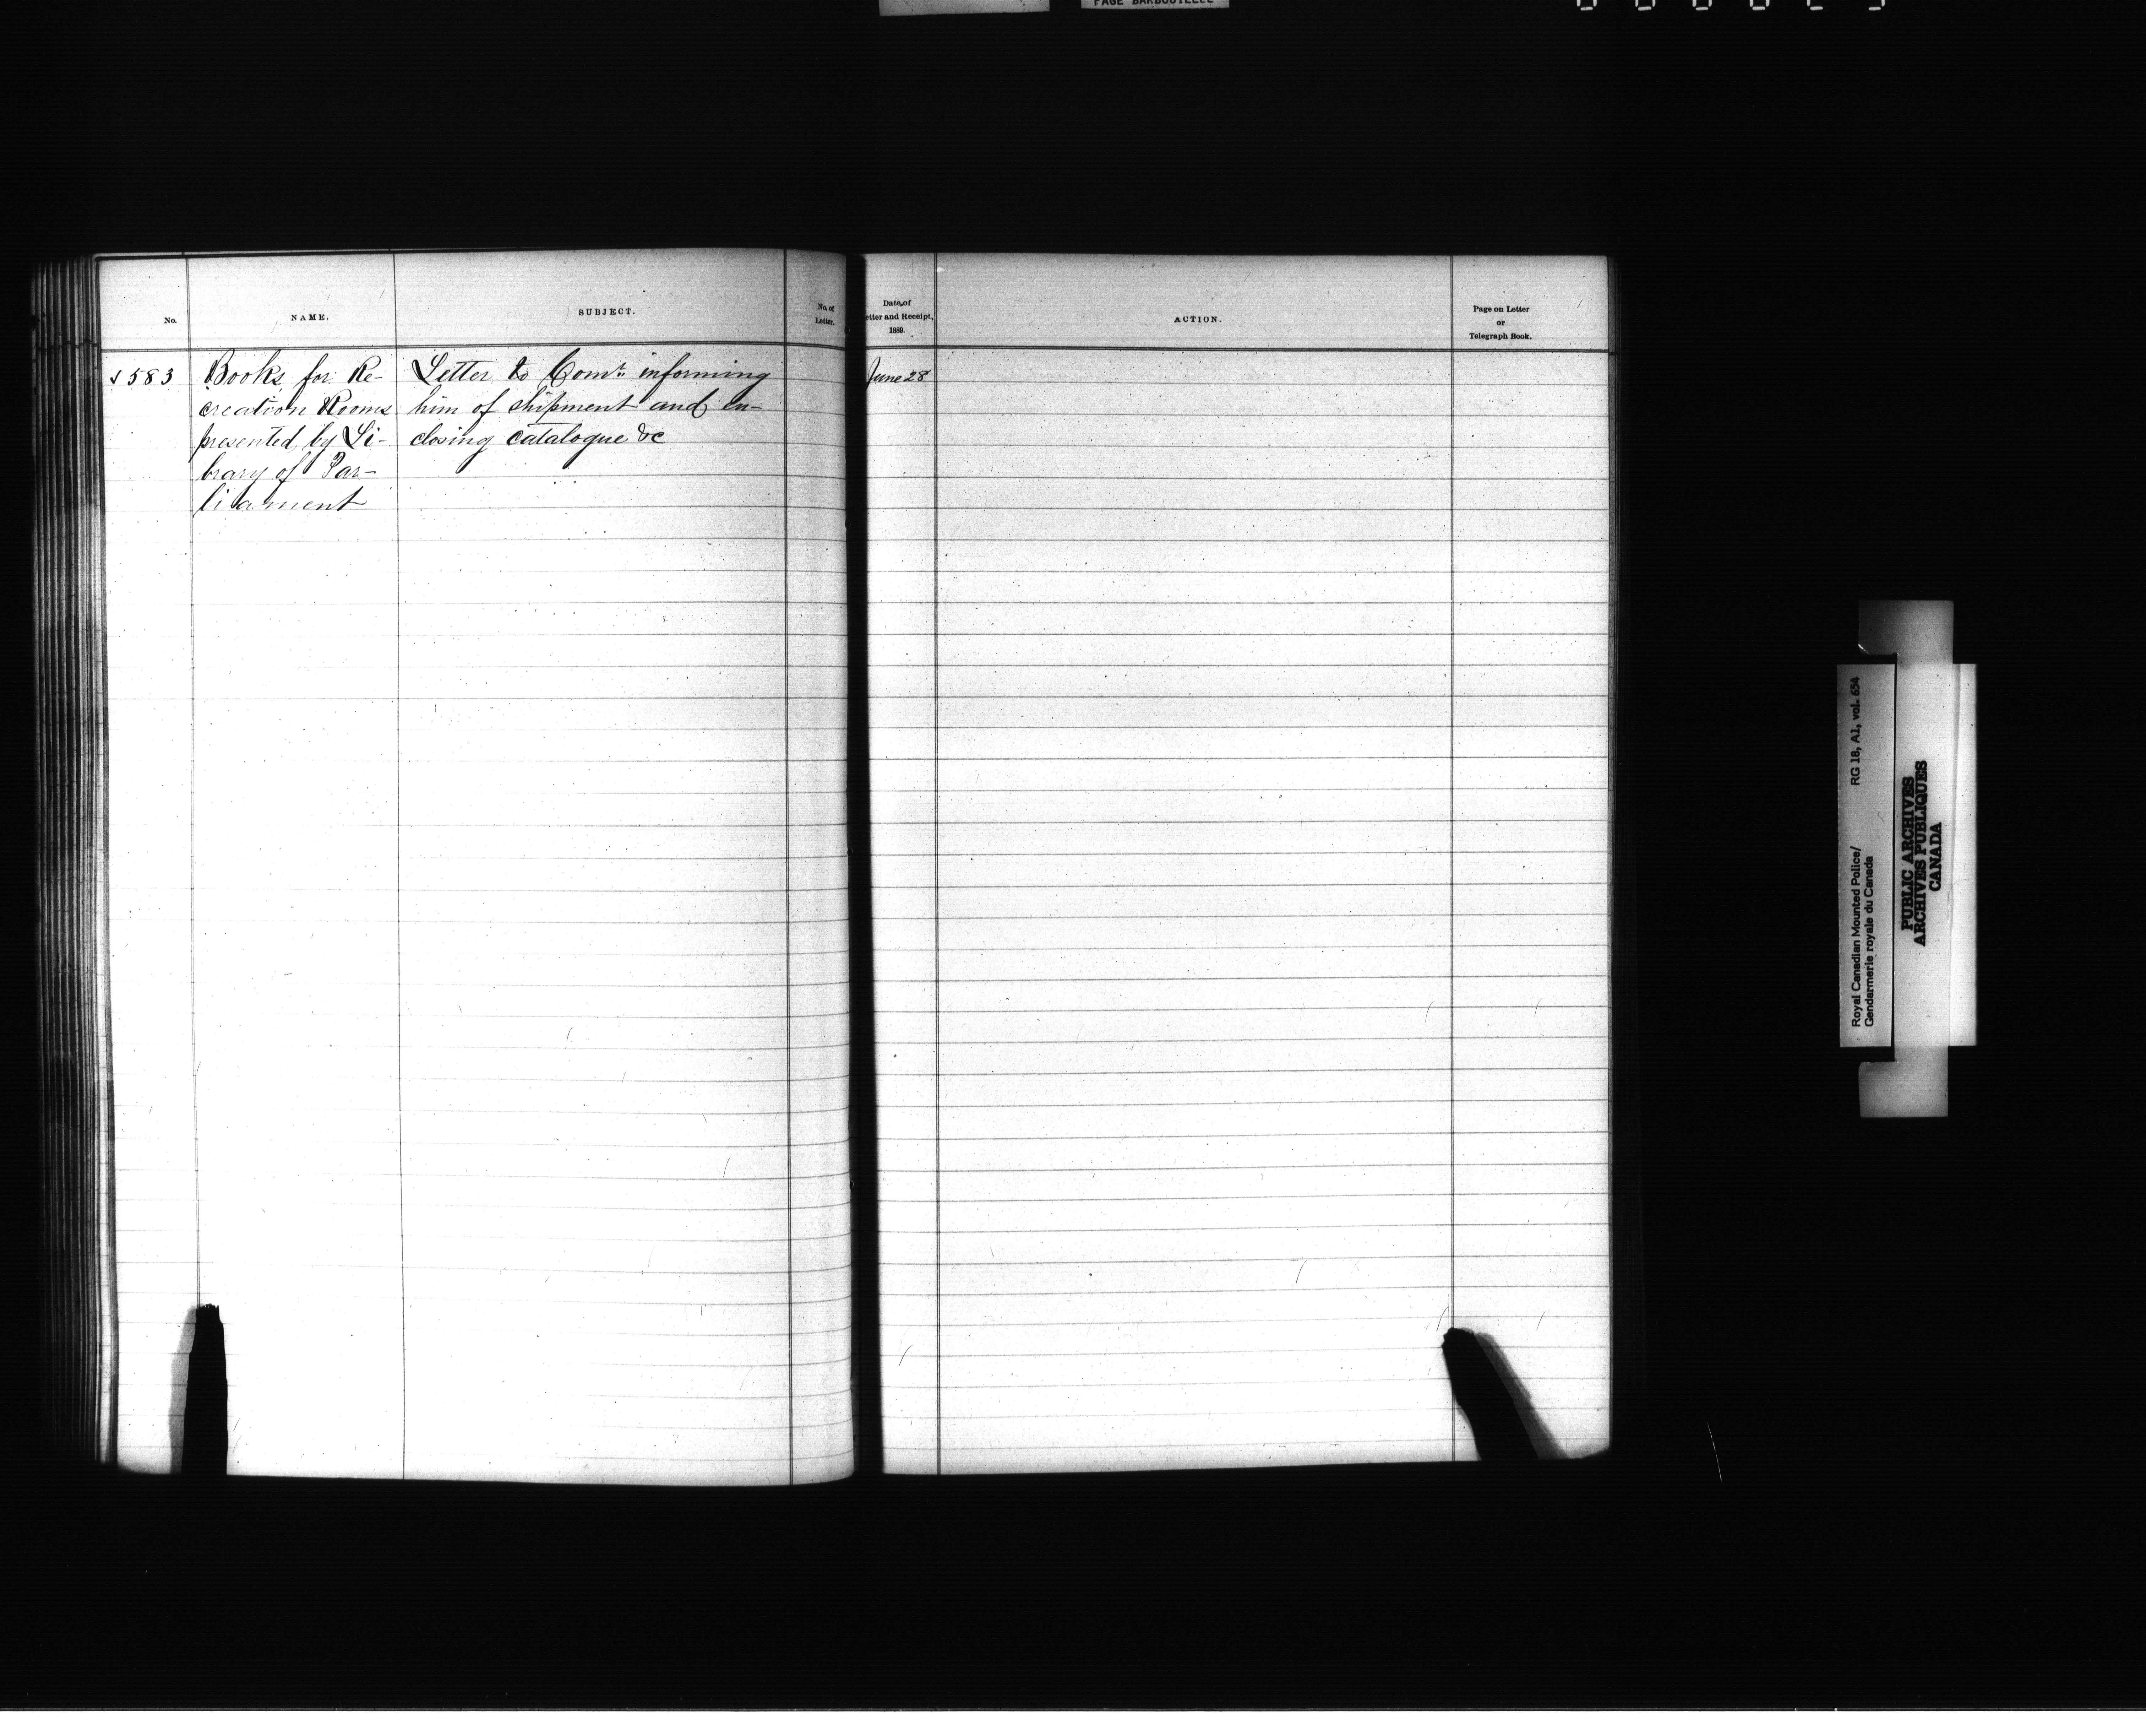 PAGE BARBOUILLEE
No.
NAME.
SUBJECT.
No. of
Letter.
Date of
etter and Receipt,
1889.
ACTION.
Page on Letter
or
Telegraph Book.
583
Books for Re-
creation Rooms
presented by Li-
brary of Par-
liament
Letter to Comr. informing
him of shipment and en-
closing catalogue &c
June 28
Royal Canadian Mounted Police/ RG 18, A1, vol. 654
Gendarmerie royale du Canada
PUBLIC ARCHIVES
ARCHIVES PUBLIQUES
CANADA